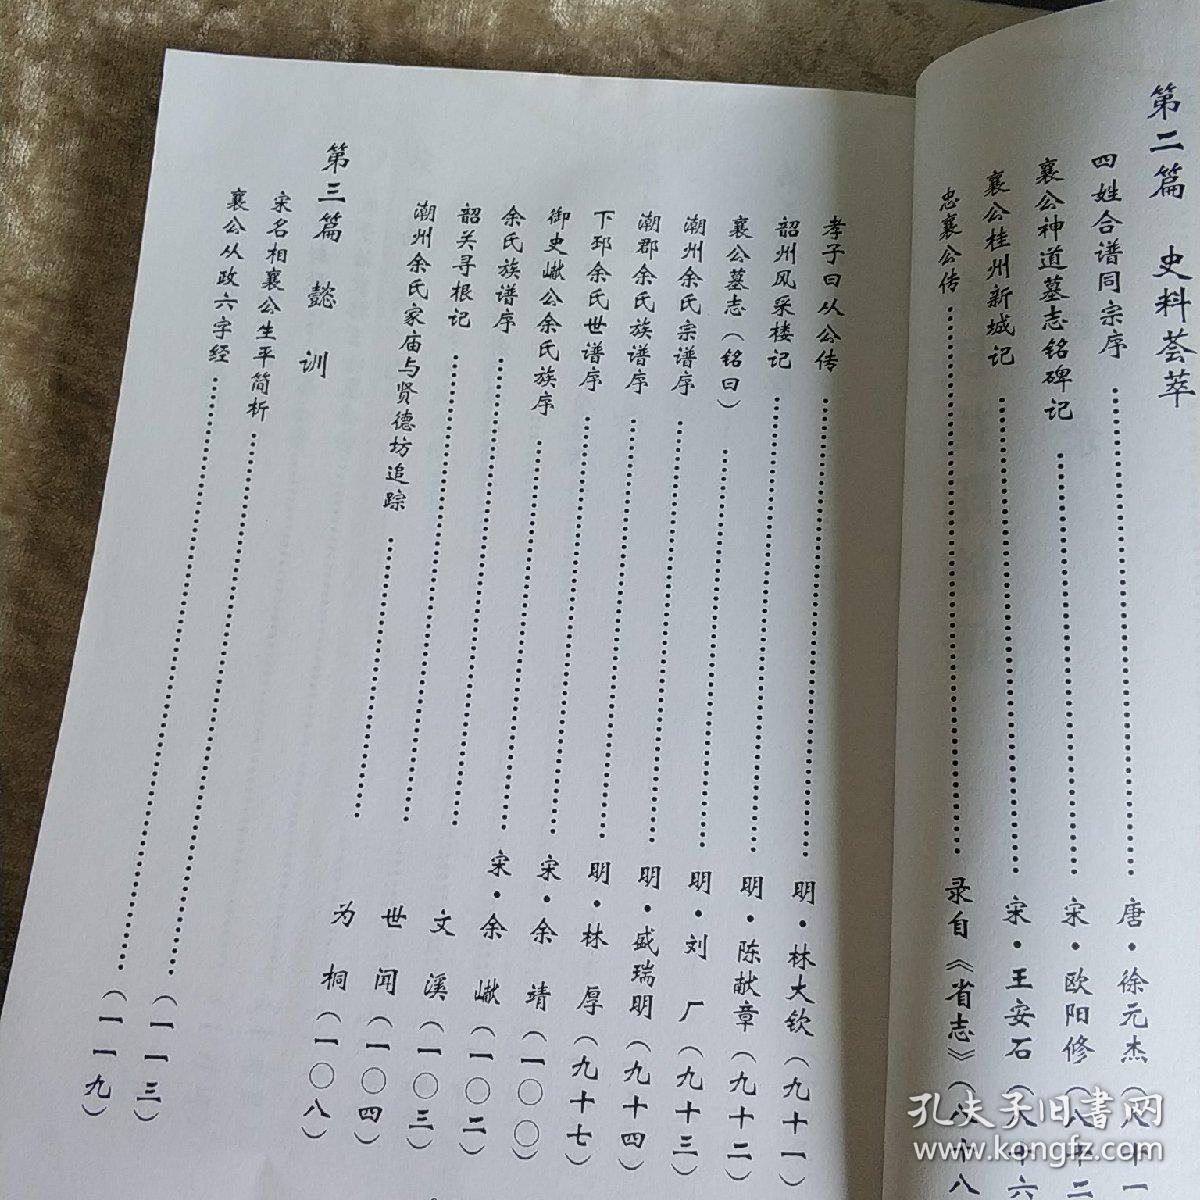 第二篇 史料荟萃
四姓合谱同宗序……唐·徐元杰（八十一
襄公神道墓志铭碑记……宋·欧阳修（八十二
襄公桂州新城记……宋·王安石（八十六
忠襄公传……录自《省志》（八十八
孝子曰从公传……明·林大钦（九十一）
韶州风采楼记……明·陈献章（九十二）
襄公墓志（铭曰）……明·刘厂（九十三）
潮州余氏宗谱序……明·盛瑞明（九十四）
潮郡余氏族谱序……明·林厚（九十七）
下邳余氏世谱序……宋·余靖（一〇〇）
御史𪩘公余氏族序……宋·余𪩘（一〇二）
余氏族谱序……文溪（一〇三）
韶关寻根记……世闻（一〇四）
潮州余氏家庙与贤德坊追踪……为桐（一〇八）
第三篇 懿训
宋名相襄公生平简析……（一一三）
襄公从政六字经……（一一九）
孔夫子旧书网
www.kongfz.com